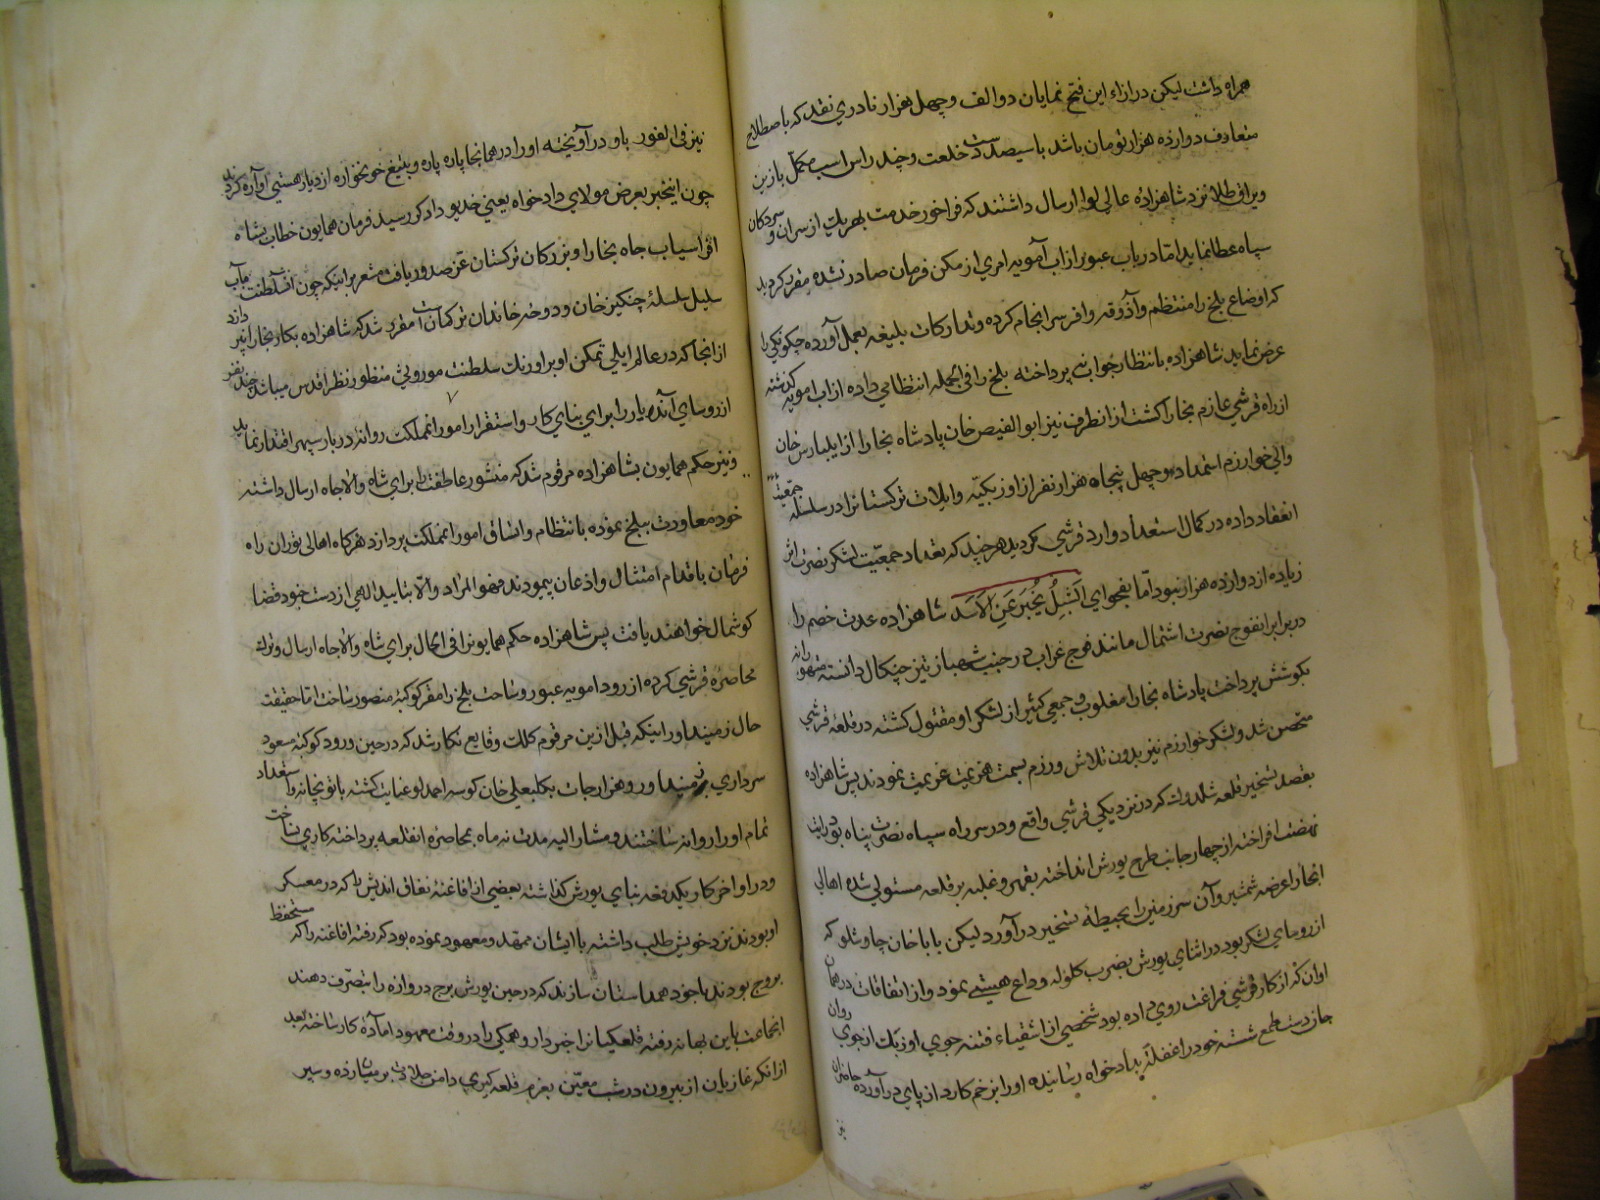 همراه داشت لیکن در ازاء این فتح نمایان دو الف و چهل هزار نادری نقد که باصطلاح
متعارف دوازده هزار تومان باشد با سیصد دست خلعت و چند راس اسب مکمل بازین
ویراق طلا نزد شاهزاده عالی لوا ارسال داشتند که فراخور خدمت بهر یک از سران و سرکردکان
سپاه عطا نماید اما در باب عبور از اب آمویه امری از مکمن فرمان صادر نشده مقرر کردید
که اوضاع بلخ را منتظم و آذوقه وافر سرانجام کرده و تدارکات بلیغه بعمل آورده چکونکی را
عرض نماید شاهزاده بانتظار جواب نپرداخته بلخ را فی الجمله انتظامی داده از اب امویه کذشته
از راه قرشی عازم بخارا کشت از انطرف نیز ابو الفیض خان پادشاه بخارا از ایلبارس خان
والی خوارزم استمداد و چهل پنجاه هزار نفر از اوزبکیه و ایلات ترکستانرا در سلسله جمعیت
انعقاد داده در کمال استعداد وارد قرشی کردید هر چند که تعداد جمعیت لشکر نصرت اثر
زیاده از دوازده هزار نبود اما بفحوای الشبل یخبر عن الاسد شاهزاده عدت خصم را
در برابر انفوج نصرت اشتمال مانند فوج غراب در جنب شهباز تیز چنکال دانسته متهورانه
بکوشش پرداخت پادشاه بخارا مغلوب و جمعی کثیر از لشکر او مقتول کشته در قلعه قرشی
متحصن شد و لشکر خوارزم نیز بدون تلاش و رزم بسمت هزیمت عزیمت نمودند پس شاهزاده
بقصد تسخیر قلعه شلدوک که در نزدیکی قرشی واقع و در سر راه سپاه نصرت پناه بود رایت
نهضت افراخته از چهار جانب طرح یورش انداخته بقهر و غلبه بر قلعه مستولی شده اهالی
انجا را عرضه شمشیر و آن سرزمین را بحیطه تسخیر درآورد لیکن بابا خان چاوشلو که
از روسای لشکر بود در اثنای یورش بضرب کلوله وداع هستی نمود و از اتفاقات در همان
اوان که از کار قرشی فراغت روی داده بود شخصی از اشقیاء فتنه جوی اوزبک از جوی روان
جان دست طمع شسته خود را غفلة بدادخواه رسانیده او را بزخم کارد از پای درآورده حاضران
نیز
نیز فی الفور باو درآویخته او را در همانجا پاره پاره و بتیغ خونخواره از دیار هستی آواره کردند
چون اینخبر بعرض مولای دادخواه یعنی خدیو دادکر رسید فرمان همایون خطاب بشاه
افراسیاب جاه بخارا و بزرکان ترکستان عز صدور یافت مشعر براینکه چون انسلطنت مآب
سلیل سلسله چنکیزخان و دوحه خاندان ترکمان است مقرر شد که شاهزاده بکار بخارا نپردازد
از انجا که در عالم ایلی تمکن او بر اورنک سلطنت موروثی منظور نظر اقدس میباشد چند نفر
از روسای آندیار را برای بنای کار و استقرار امور انمملکت روانه دربار سپهر اقتدار نماید
و نیز حکم همایون بشاهزاده مرقوم شد که منشور عاطفت را برای شاه والاجاه ارسال داشته
خود معاودت ببلخ نموده بانتظام و اتساق امور انمملکت پردازد هرکاه اهالی توران راه
فرمان باقدام امتثال و اذعان پیمودند فهو المراد والا بتایید الهی از دست خود قضا
کوشمال خواهند یافت پس شاهزاده حکم همایونرا فی الحال برای شاه والاجاه ارسال و ترک
محاصره قرشی کرده از رود امویه عبور و ساحت بلخ را مقر کوکبه منصور ساخت اما حقیقت
حال زمینداور اینکه قبل ازین مرقوم کلک وقایع نکار شد که در حین ورود کوکبه مسعود
سرداری زمینداور و هزارجات بکلبعلی خان کوسه احمدلو عنایت کشته با توپخانه و استعداد
تمام او را روانه ساختند و مشار الیه مدت نه ماه بمحاصره انقلعه پرداخته کاری نساخت
و در اواخر کار یکدفعه بنای یورش کذاشته بعضی از افاغنه نفاق اندیش را که در معسکر
او بودند نزد خویش طلب داشته با ایشان ممهد و معهود نموده بود که رفته افاغنه را که مستحفظ
بروج بودند با خود همداستان سازند که در حین یورش برج دروازه را بتصرف دهند
انجماعت باین بهانه رفته قلعکیانرا خبردار و همکی را در وقت معهود امادۀ کار ساخته بعد
از انکه غازیان از بیرون در شب معین بعزم قلعه کیری دامن جلادت بر میان زده و سیر